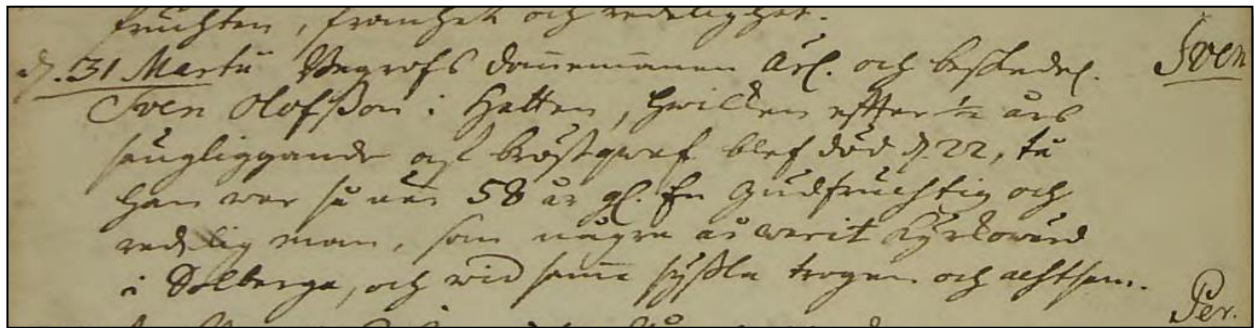 fruchten, fromhet och redelighet.
d. 31 Martii Begrofs dannemannen Ärl. och beskedel. Sven
Sven Olofsson i Hatten, hwilken effter ½ års
sängliggande af bröstqwaf blef död d. 22, tå
han war på 58 år gl. En gudfruchtig och
redelig man, som några år warit Kyrkowärd
i Solberga, och wid samma syssla trogen och achtsam.
Per.